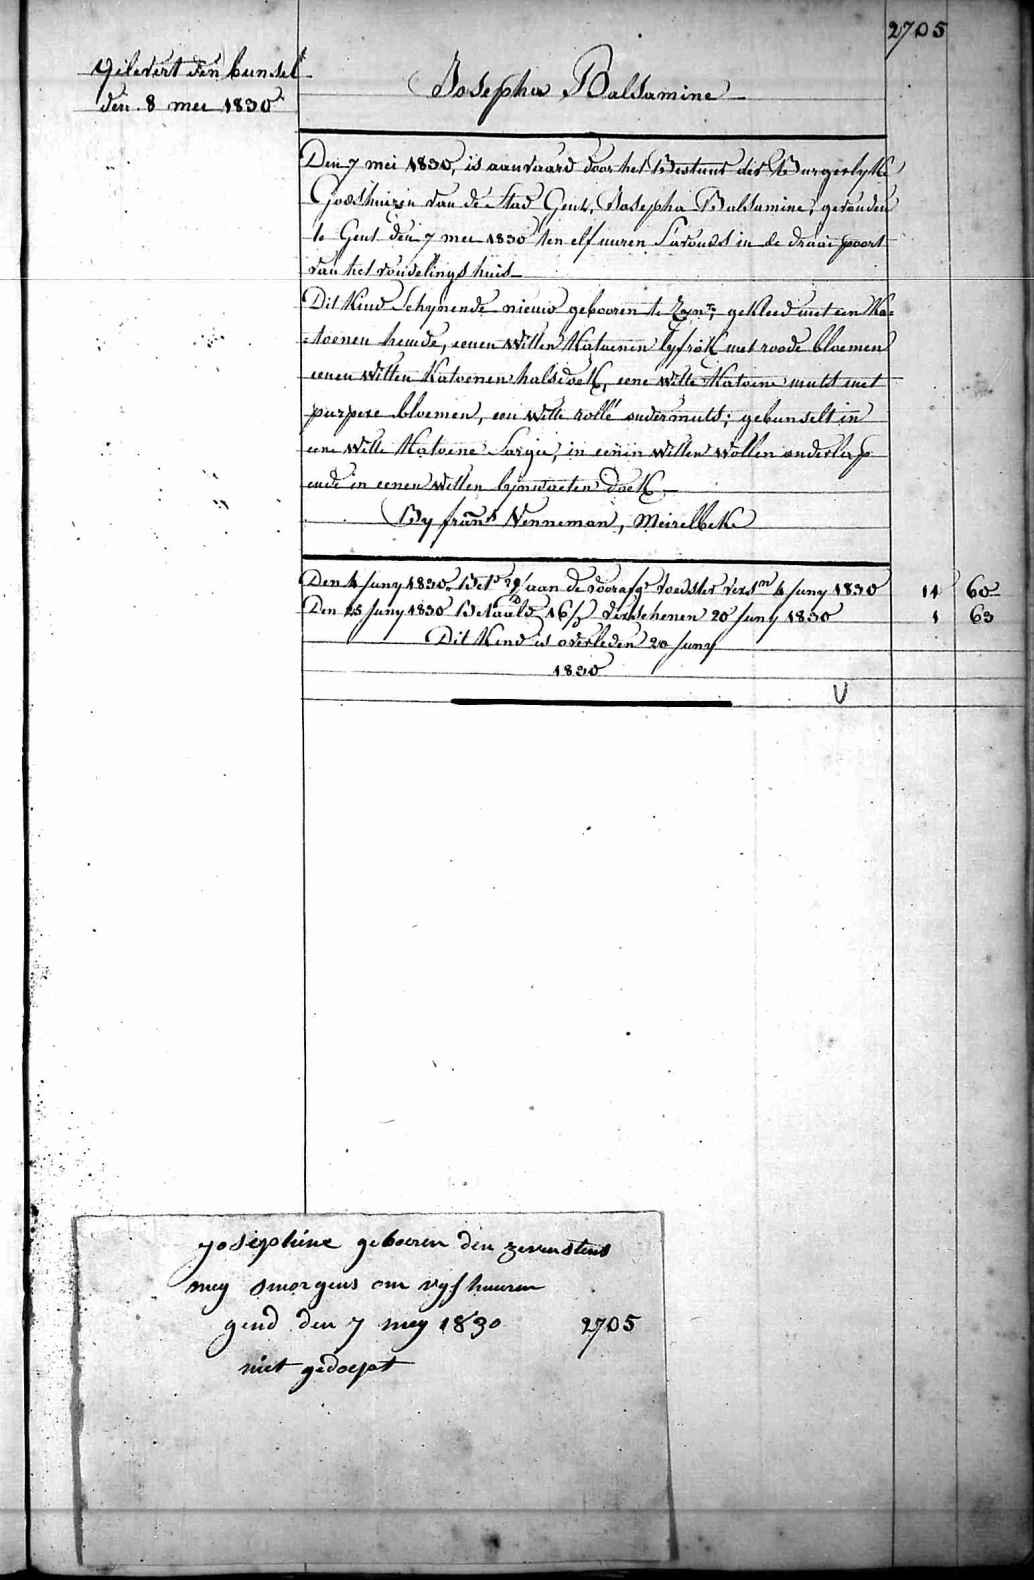 2705
Gelevert den bunsel
den 8 mei 1830
Josepha Balsamine
Den 7 mei 1830, is aanvaard door het Bestuur der Burgerlyke
Godshuizen van de Stad Gent, Josepha Balsamine, gevonden
te Gent den 7 mei 1830 ten elf uuren S'avonds in de draai poort
van het vondelingshuis
Dit Kind Schynende nieuw gebooren te Zyn, gekleed met een Ka=
=toenen hemde, eenen Witten Katoenen lyfrok met roode bloemen
eenen Witten Katoenen halsdoek, eene Witte Katoene muts met
purpere bloemen, een Witte rolle ondermuts; gebunselt in
eene Witte Katoene Sargie, in eenen Witten Wollen onderlap
ende in eenen Witten lynwaeten doek
By frans Venneman, Meirelbeke
Den 4 Juny 1830 Bet aan de voorafg voedster vers 4 Juny 1830 14 60
Den 25 Juny 1830 Betaald 16/ Verschenen 20 Juny 1830 1 63
Dit Kind is overleden 20 Juny
1830
V
Josephine geboeren den zevensten
mey smorgens om vyf huuren
gend den 7 mey 1830 2705
niet gedoept